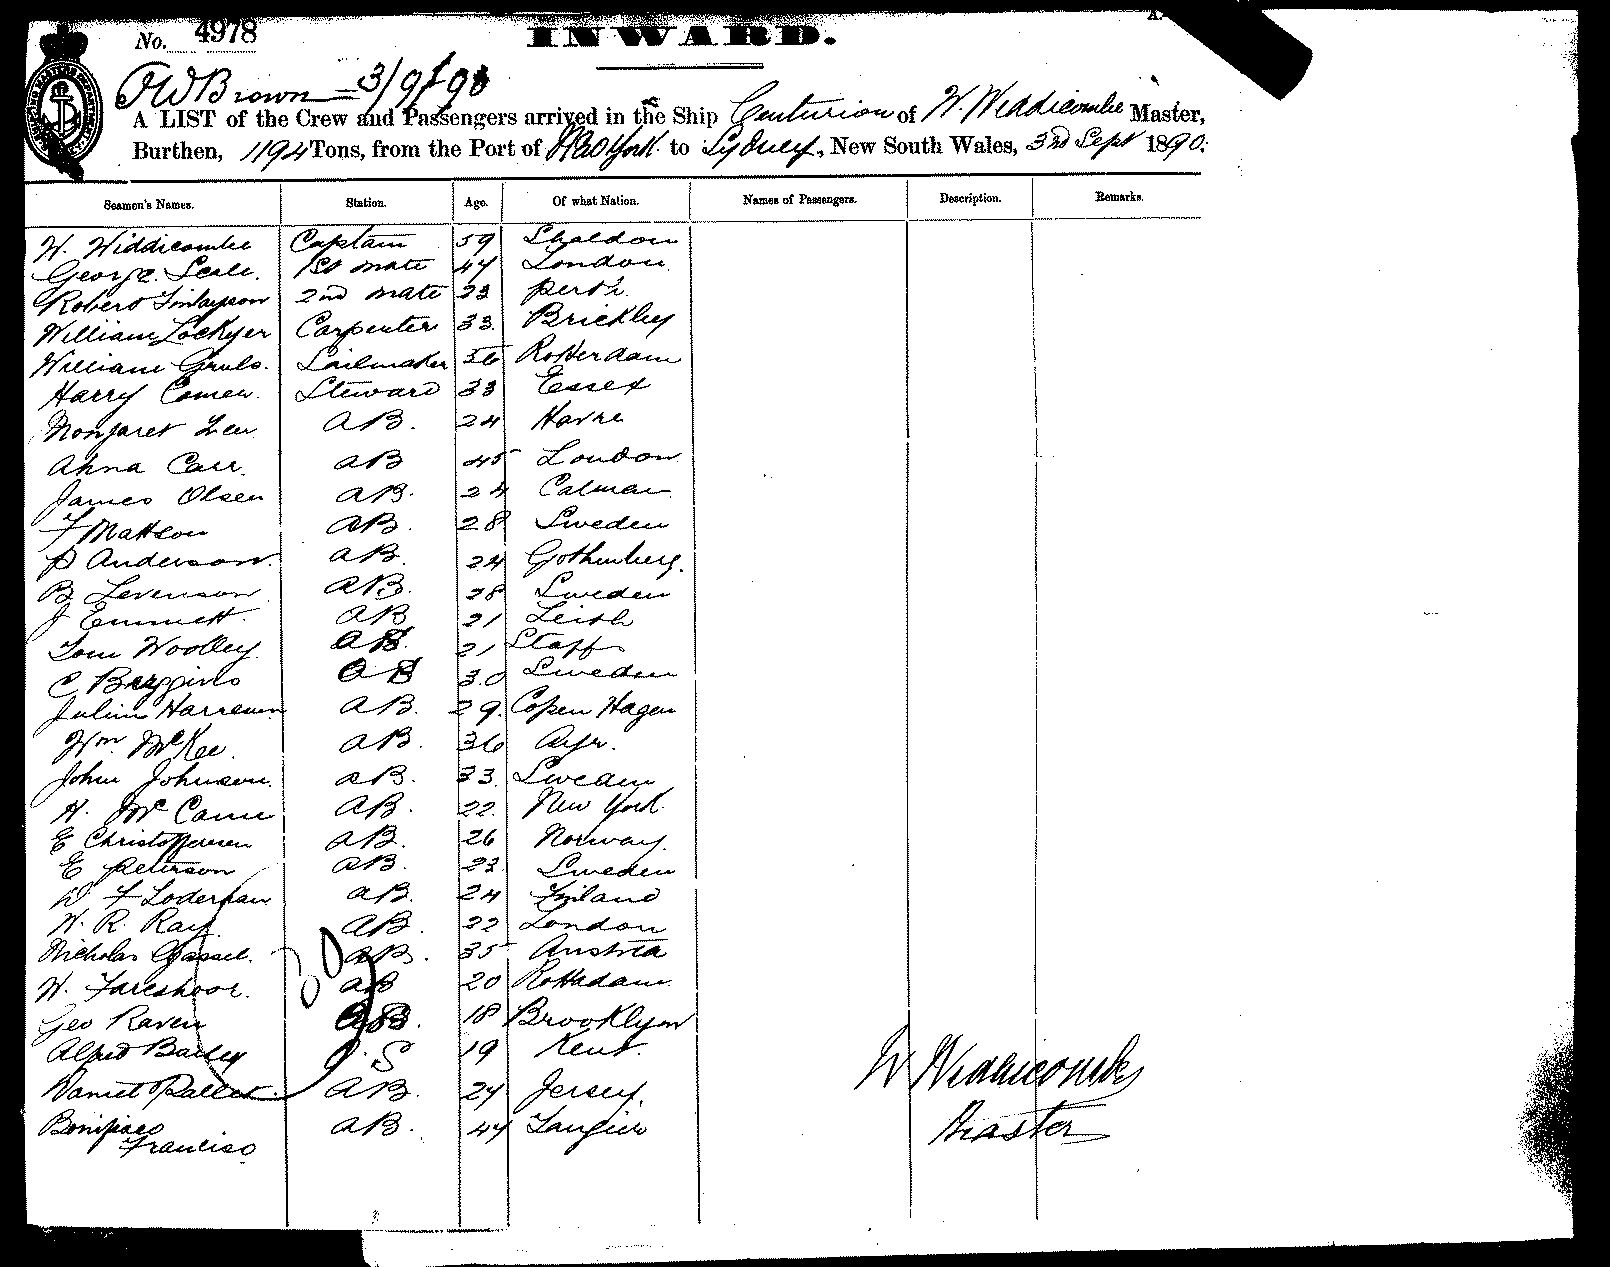 No. 4978
INWARD.
FW Brown 3/9/90
A LIST of the Crew and Passengers arrived in the Ship Centurion of W. Widdicombe Master,
Burthen, 1194 Tons, from the Port of New York to Sydney, New South Wales, 3rd Sept 1890.
Seamen's Names. Station. Age. Of what Nation. Names of Passengers. Description. Remarks.
W. Widdicombe Captain 59 Shaldon
George Seale. 1st mate 47 London
Robert Finlayson 2nd mate 23 Perth
William Lockyer Carpenter 33 Brickley
William Sailmaker 56 Rotterdam
Harry Comer Steward 33 Essex
AB. 24 Havre
Carr. AB 45 London
James Olsen AB. 24 Calmar
F Mattson AB. 28 Sweden
P Anderson AB. 24 Gothenberg.
B Levenson AB. 28 Sweden
J Emmett AB 21 Leith
Tom Woolley AB. 21 Staff
C AB 30 Sweden
AB. 29. Copen Hagen
Wm McKee AB. 36 Ayr.
John Johnson AB. 33. Sweden
H. McCann AB. 22. New York
E Christoffersen AB. 26 Norway.
E Peterson AB. 23 Sweden
AB. 24 Finland
W. R. Ray AB. 22 London
Nicholas AB. 35 Austria
W. AB 20 Rottadam
Geo Raven AB. 18 Brooklyn
Alfred Bailey O.S 19 Kent.
Daniel Pallet AB. 24 Jersey.
Bonifaco AB. 44 Tangier
Franciso
W Widdicombe
Master